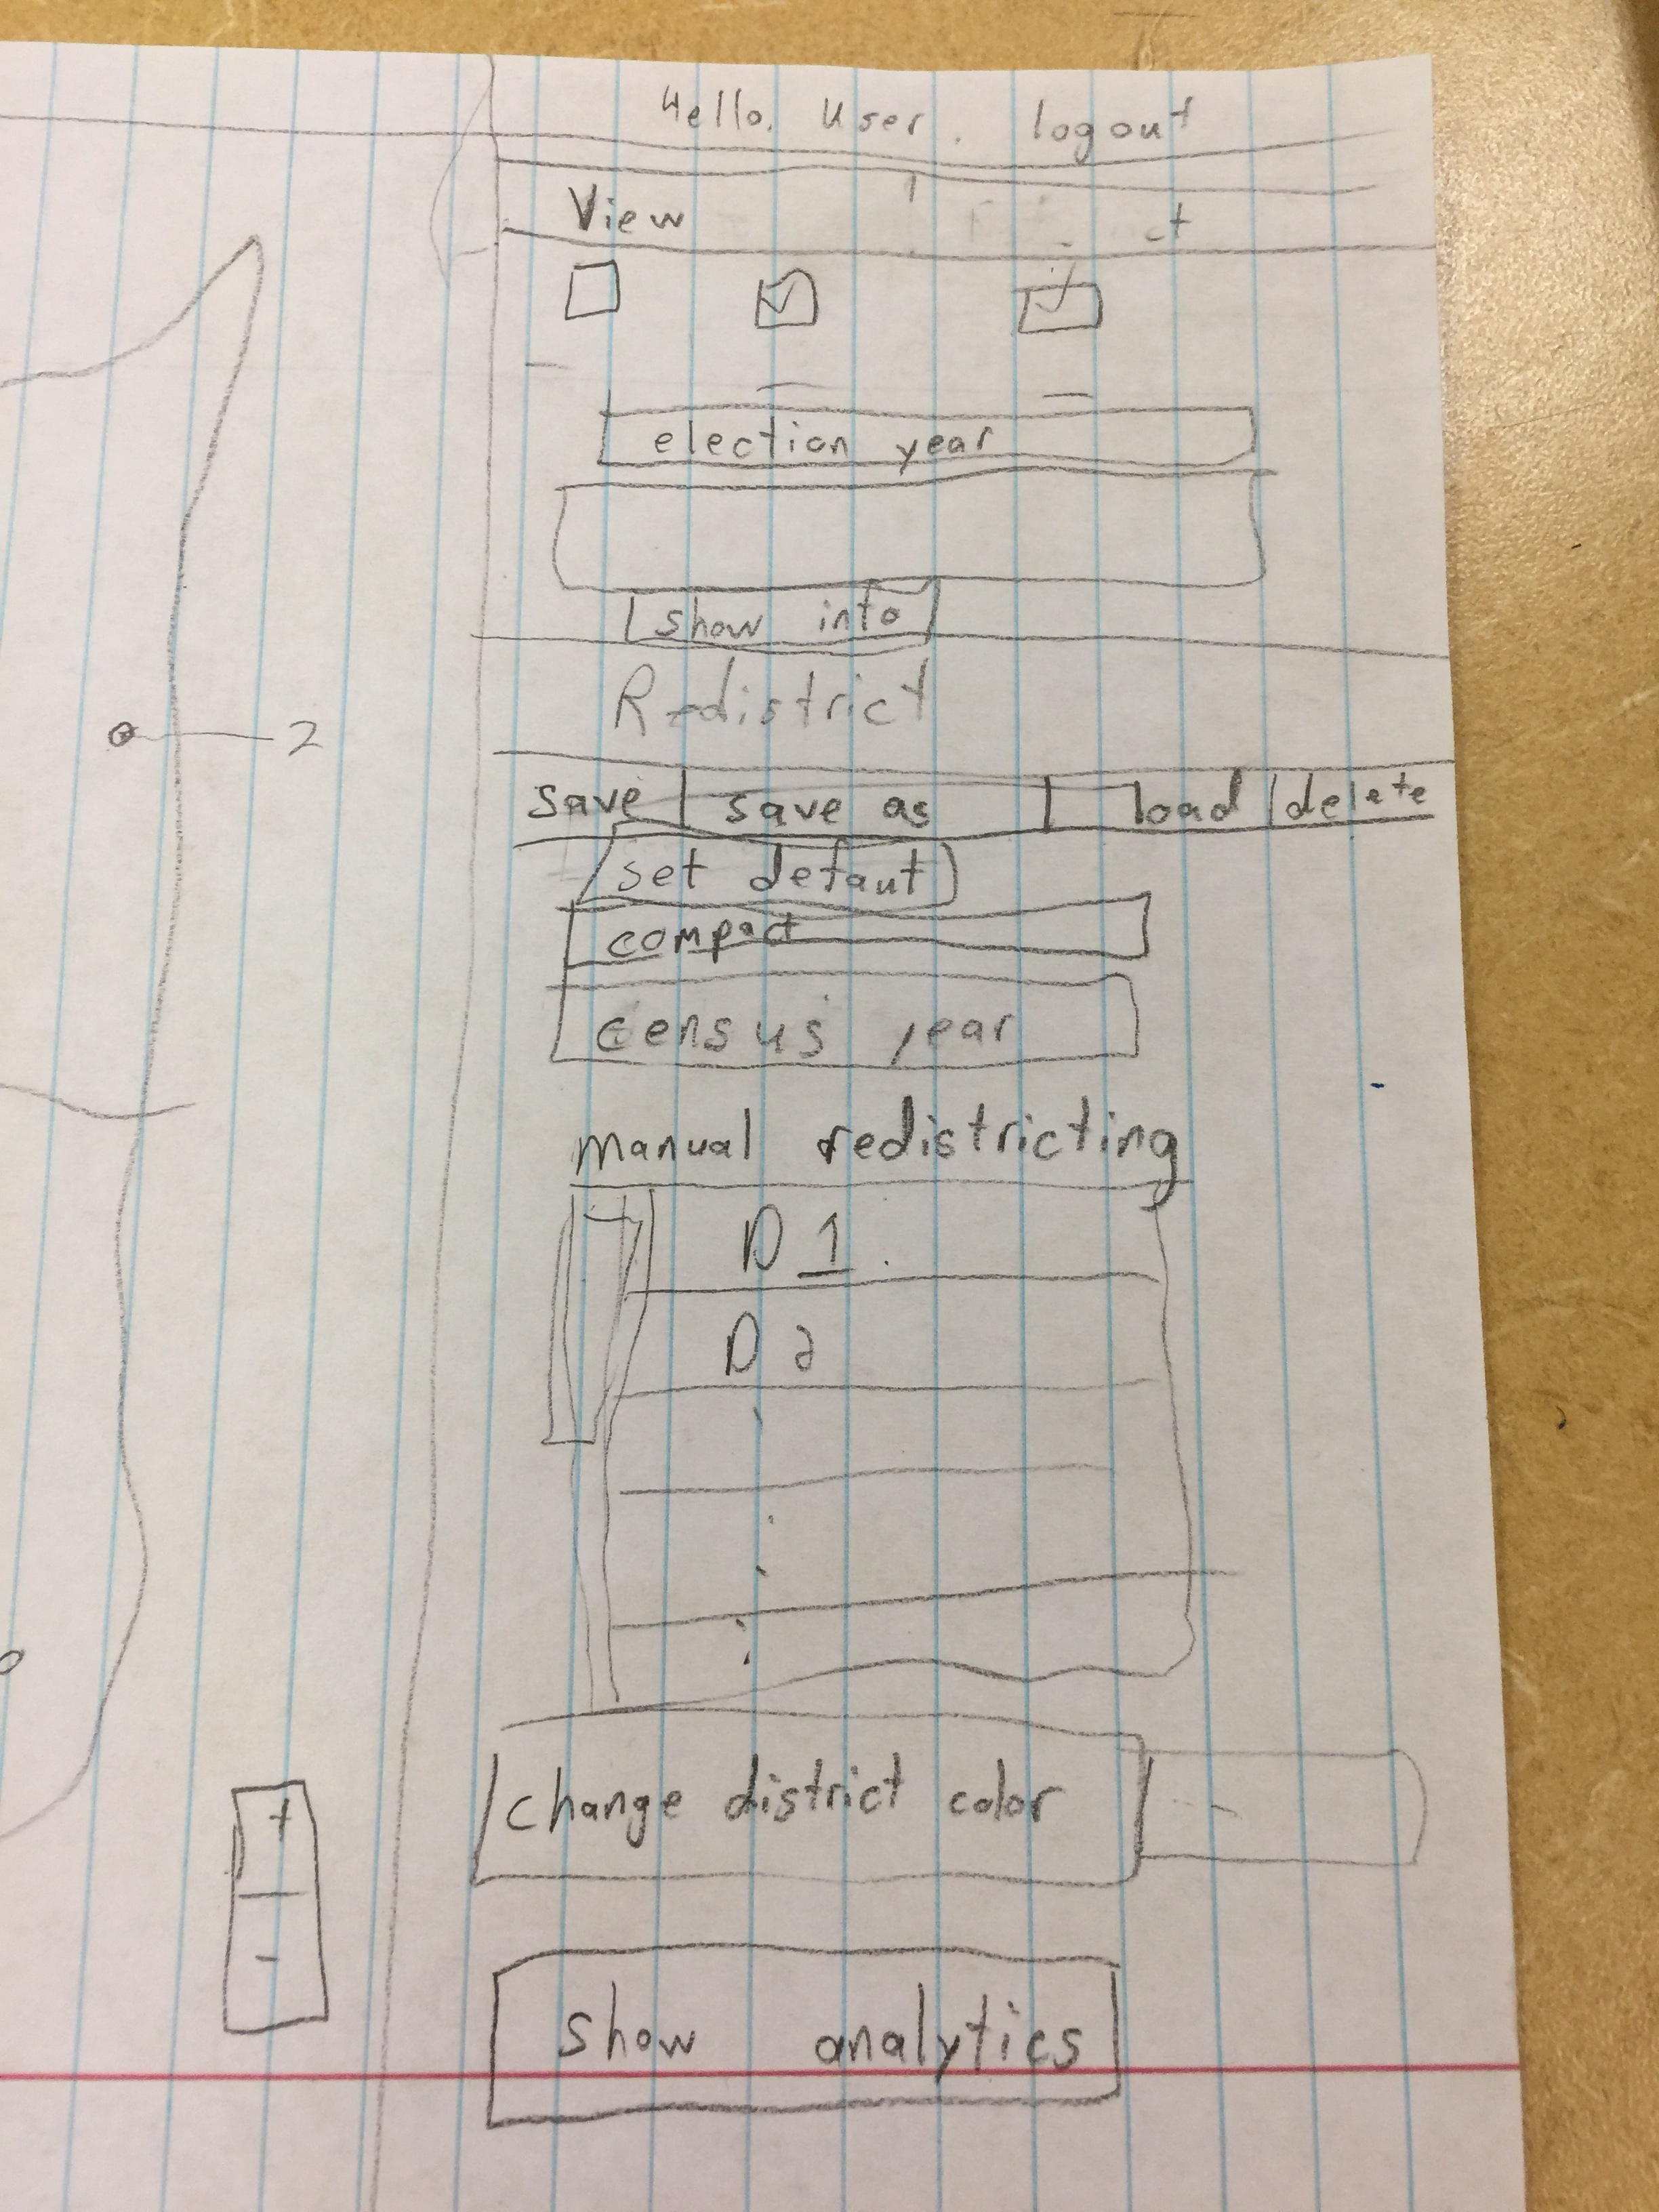 Hello, User. logout
View
election year
show into
Redistrict
save save as load delete
set defaut
compact
census year
2
manual redistricting
D 1
D 2
change district color
+
-
show analytics